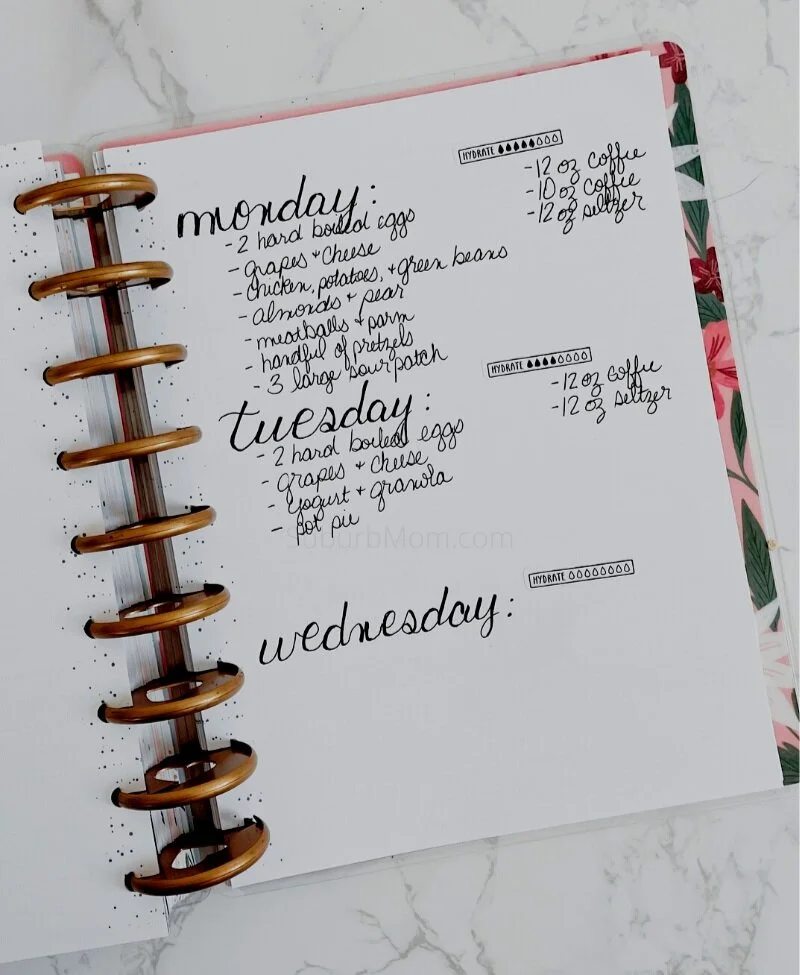 HYDRATE
-12 oz coffee
-10 oz coffee
-12 oz seltzer
monday:
-2 hard boiled eggs
-grapes + cheese
-chicken, potatoes, + green beans
-almonds + pear
-meatballs + parm
-handful of pretzels
-3 large sour patch
HYDRATE
-12 oz coffee
-12 oz seltzer
tuesday:
-2 hard boiled eggs
-grapes + cheese
-yogurt + granola
-pot pie
SuburbMom.com
HYDRATE
wednesday: